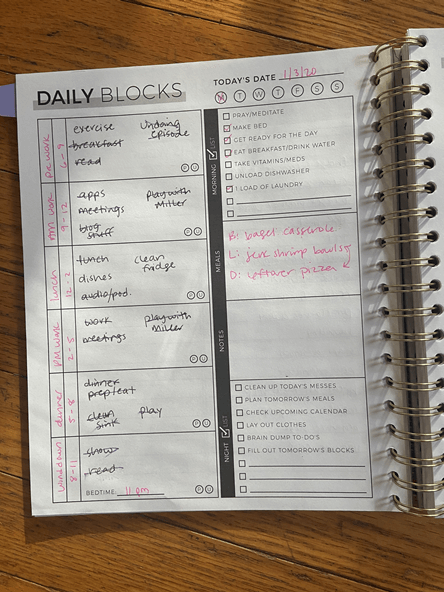 DAILY BLOCKS
TODAY'S DATE 1/3/20
M T W T F S S
pre work
6-9
exercise undoing episode
breakfast
read
P U
AM work
9-12
apps play with Miller
meetings
blog stuff
P U
lunch
12-2
lunch clean fridge
dishes
audio/pod.
P U
PM work
2-5
work play with Miller
meetings
P U
dinner
5-8
dinner prep/eat
clean sink play
P U
winddown
8-11
show
read
BEDTIME: 11pm
P U
MORNING LIST
PRAY/MEDITATE
MAKE BED
GET READY FOR THE DAY
EAT BREAKFAST/DRINK WATER
TAKE VITAMINS/MEDS
UNLOAD DISHWASHER
1 LOAD OF LAUNDRY
MEALS
B: bagel casserole
L: jerk shrimp bowls
D: leftover pizza
NOTES
NIGHT LIST
CLEAN UP TODAY'S MESSES
PLAN TOMORROW'S MEALS
CHECK UPCOMING CALENDAR
LAY OUT CLOTHES
BRAIN DUMP TO-DO'S
FILL OUT TOMORROW'S BLOCKS